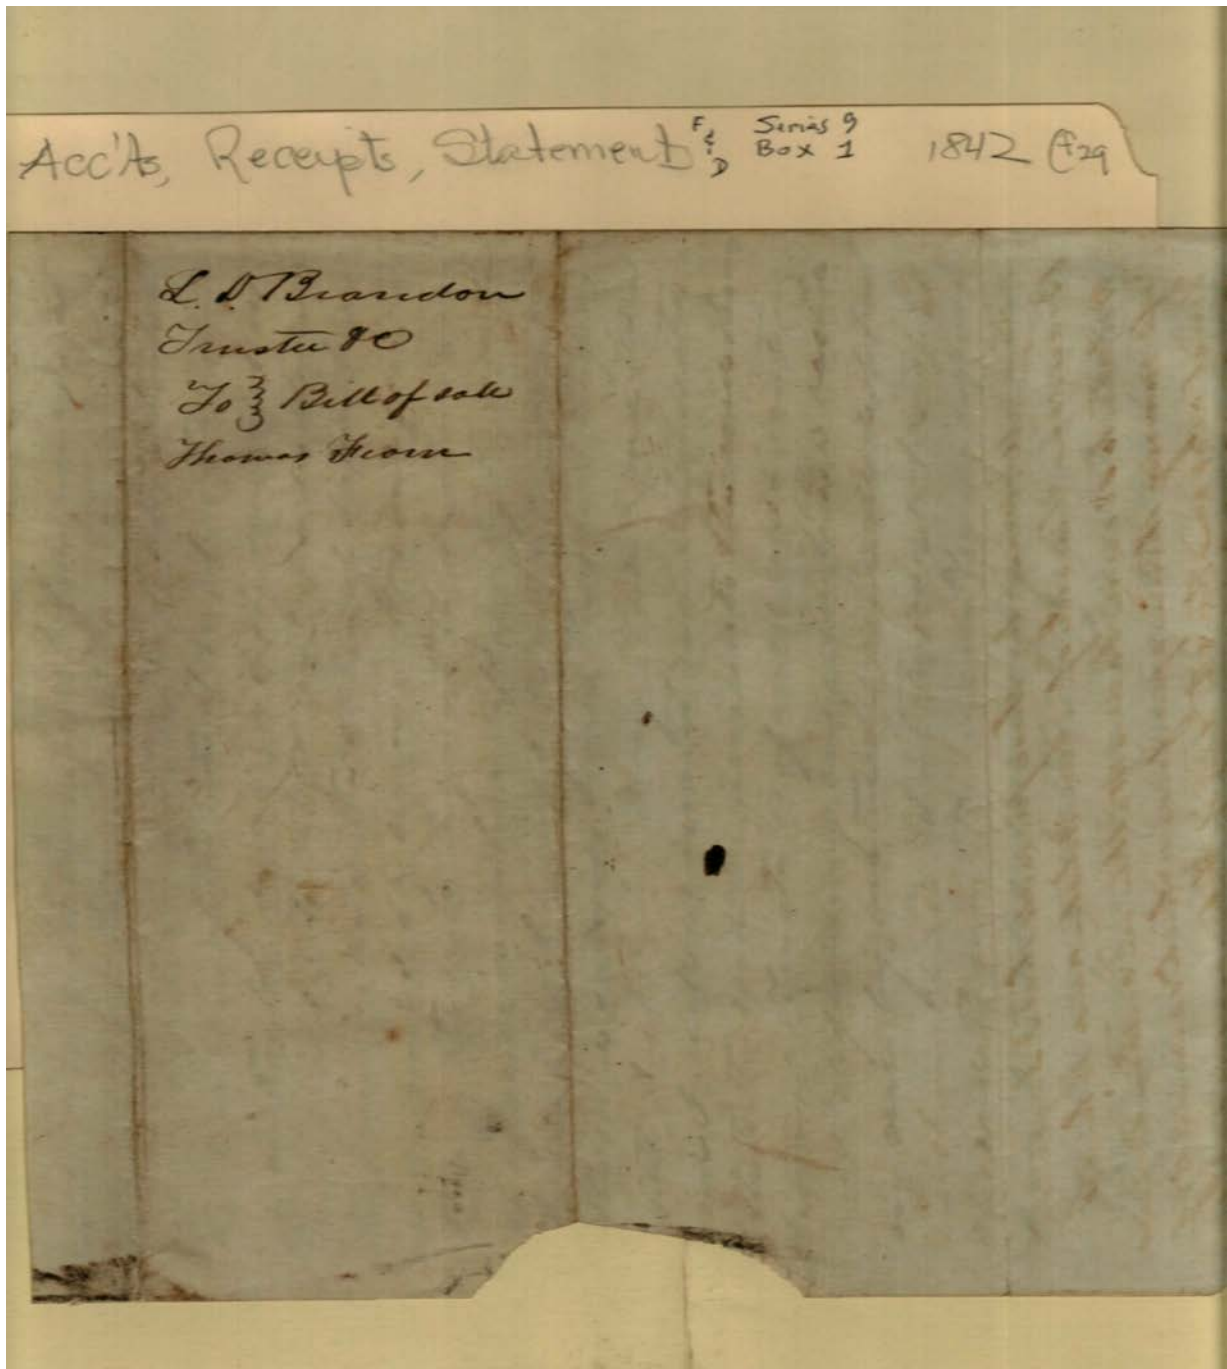 Acc'ts, Receipts, Statements F & D Series 9 Box 1 1842 f29
L. D. Brandon
Trustee &C
To } Bill of sale
Thomas Fearn